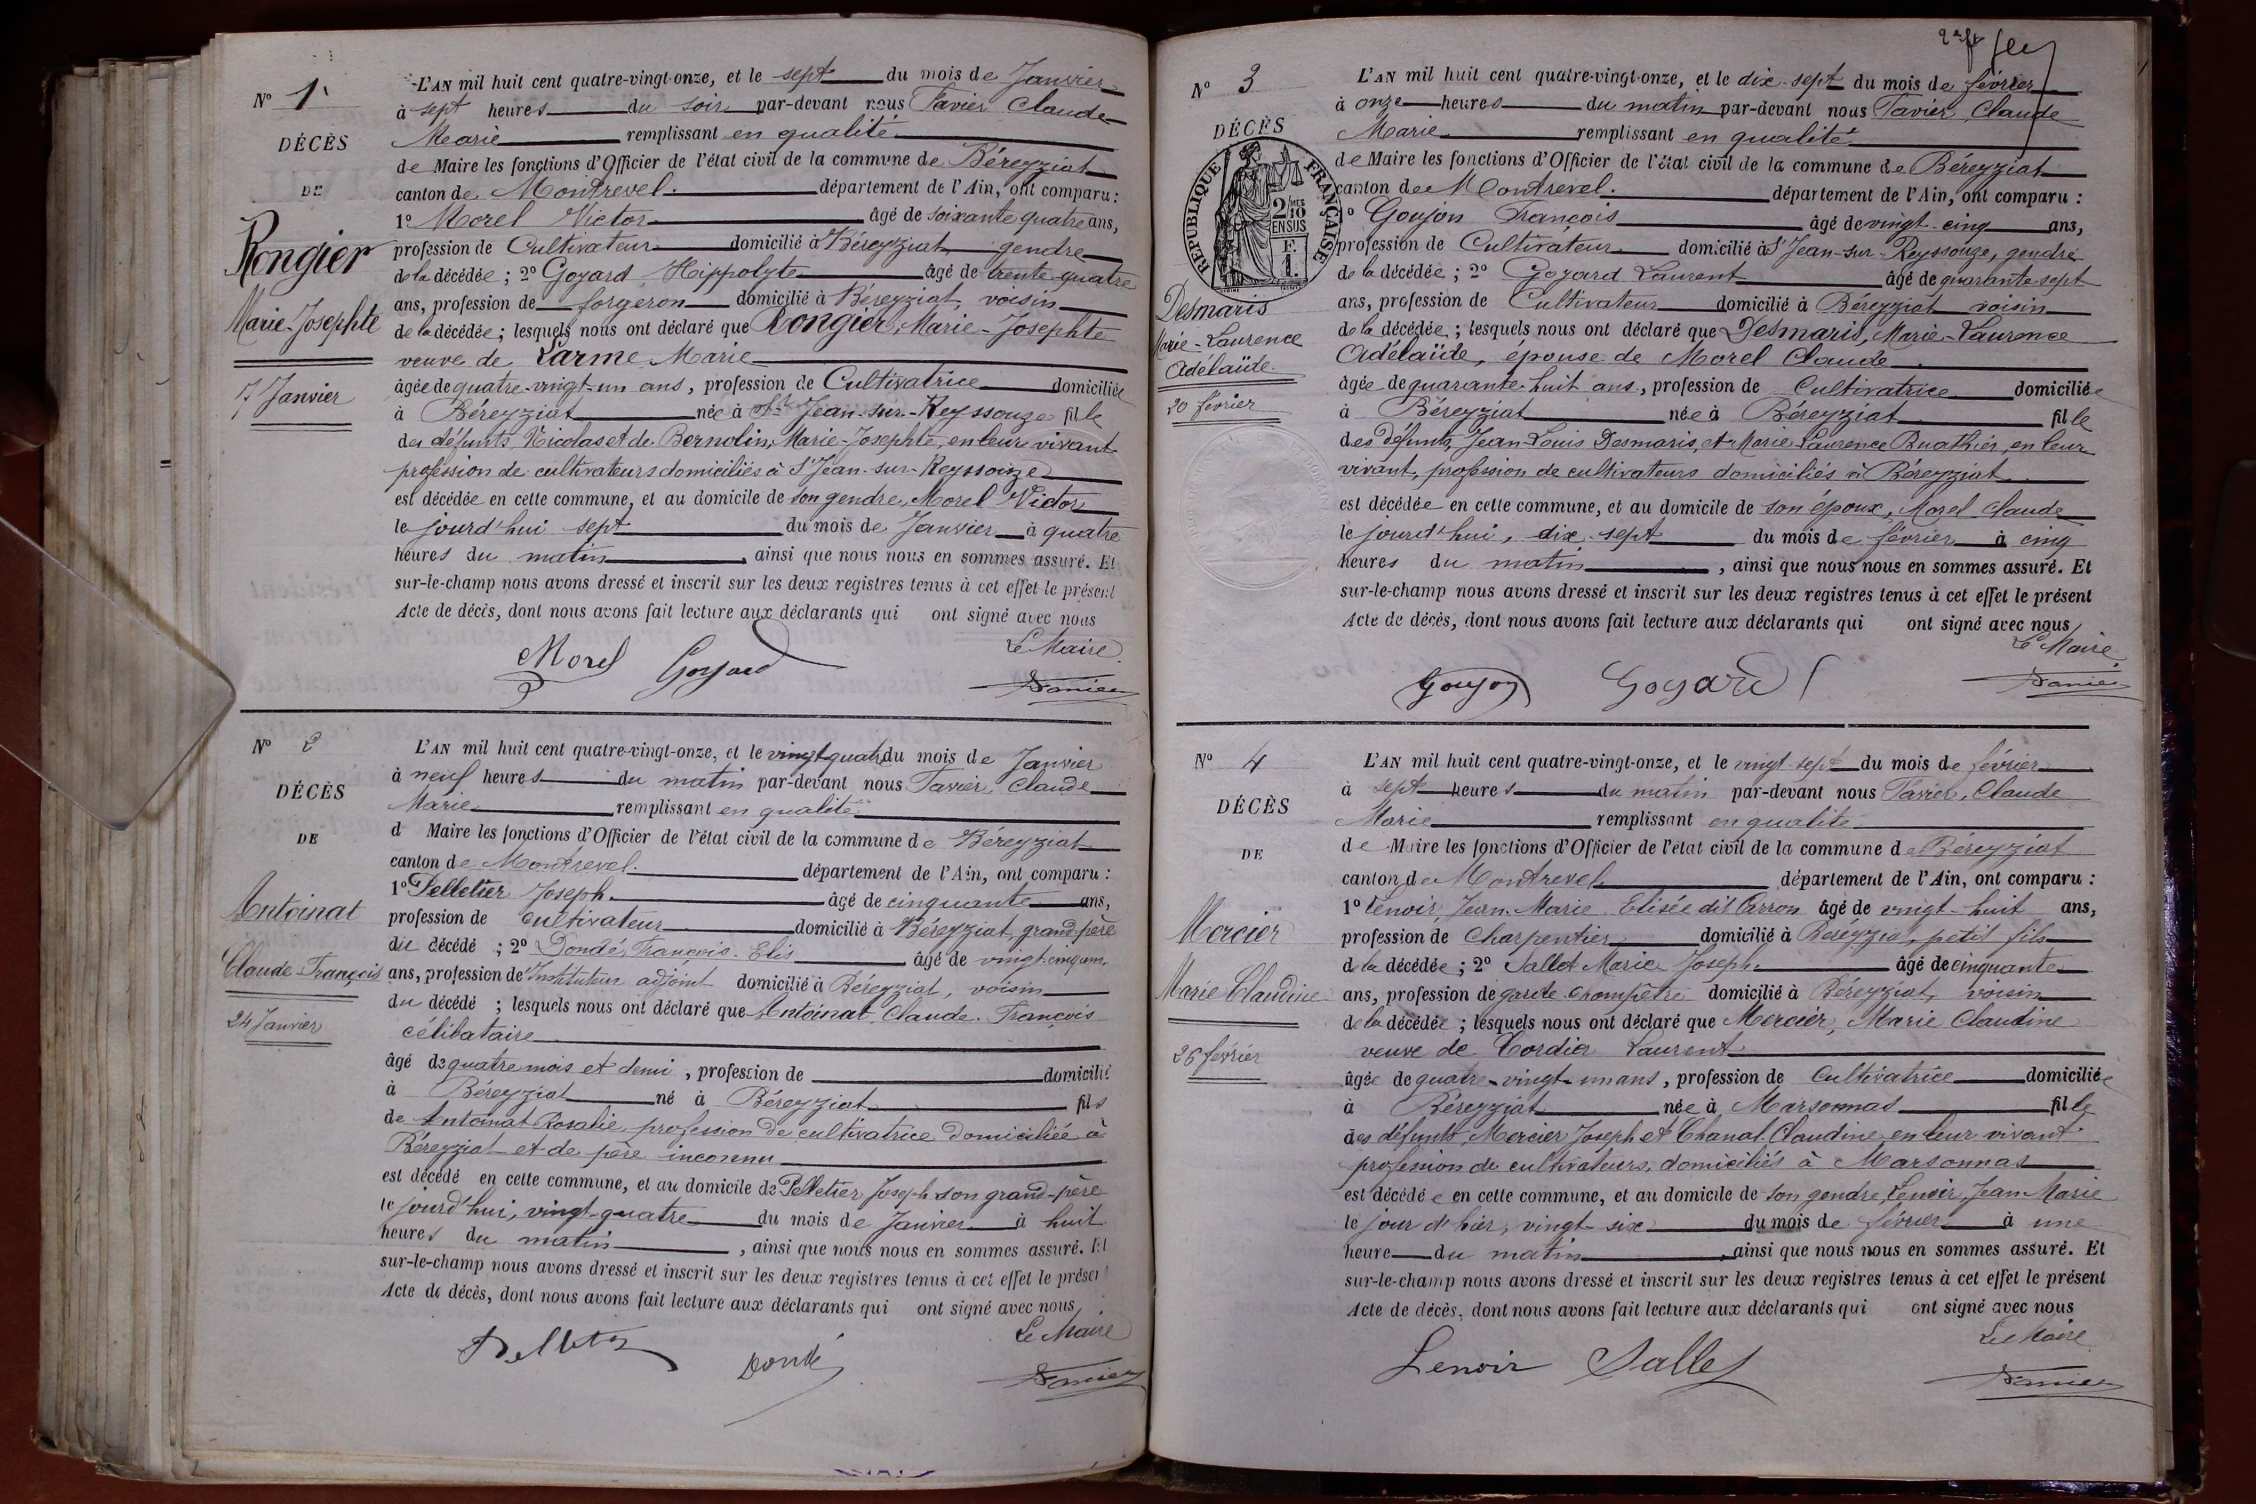 N° 1
DÉCÈS
DE
Rongier
Marie-Josephte
7 Janvier
L'AN mil huit cent quatre-vingt-onze, et le sept du mois de Janvier
à sept heures du soir par-devant nous Favier Claude
Marie remplissant en qualité
de Maire les fonctions d'Officier de l'état civil de la commune de Béreyziat
canton de Montrevel. département de l'Ain, ont comparu :
1° Morel Victor âgé de soixante quatre ans,
profession de Cultivateur domicilié à Béreyziat gendre
de la décédée ; 2° Goyard Hippolyte âgé de trente quatre
ans, profession de forgeron domicilié à Béreyziat, voisin
de la décédée ; lesquels nous ont déclaré que Rongier, Marie-Josephte
veuve de Larme Marie
âgée de quatre-vingt-un ans, profession de Cultivatrice domiciliée
à Béreyziat née à St Jean-sur-Reyssouze fille
des défunts Nicolas et de Bernolin, Marie-Josephte, en leur vivant
profession de cultivateurs domiciliés à St Jean-sur-Reyssouze
est décédée en cette commune, et au domicile de son gendre, Morel Victor
le jourd'hui sept du mois de Janvier à quatre
heures du matin, ainsi que nous nous en sommes assuré. Et
sur-le-champ nous avons dressé et inscrit sur les deux registres tenus à cet effet le présent
Acte de décès, dont nous avons fait lecture aux déclarants qui ont signé avec nous
Le Maire
Morel Goyard Favier
N° 2
DÉCÈS
DE
Antoinat
Claude François
24 Janvier
L'AN mil huit cent quatre-vingt-onze, et le vingt-quatre du mois de Janvier
à neuf heures du matin par-devant nous Favier, Claude
Marie remplissant en qualité
d Maire les fonctions d'Officier de l'état civil de la commune de Béreyziat
canton de Montrevel. département de l'Ain, ont comparu :
1° Pelletier Joseph âgé de cinquante ans,
profession de cultivateur domicilié à Béreyziat, grand-père
du décédé ; 2° Dondé, François-Elis âgé de vingt-cinq ans,
ans, profession de Instituteur adjoint domicilié à Béreyziat, voisin
du décédé ; lesquels nous ont déclaré que Antoinat, Claude-François
célibataire
âgé de quatre mois et demi, profession de domicilié
à Béreyziat né à Béreyziat fils
de Antoinat Rosalie, profession de cultivatrice domiciliée à
Béreyziat et de père inconnu
est décédé en cette commune, et au domicile de Pelletier Joseph son grand-père
le jourd'hui, vingt-quatre du mois de Janvier à huit
heures du matin, ainsi que nous nous en sommes assuré. Et
sur-le-champ nous avons dressé et inscrit sur les deux registres tenus à cet effet le présent
Acte de décès, dont nous avons fait lecture aux déclarants qui ont signé avec nous
Le Maire
Pelletier Dondé Favier
N° 3
DÉCÈS
RÉPUBLIQUE FRANÇAISE
2/10 MES
EN SUS
Desmaris
Marie-Laurence
Adélaïde
20 février
L'AN mil huit cent quatre-vingt-onze, et le dix-sept du mois de février
à onze heures du matin par-devant nous Favier, Claude
Marie remplissant en qualité
de Maire les fonctions d'Officier de l'état civil de la commune de Béreyziat
canton de Montrevel. département de l'Ain, ont comparu :
° Goujon François âgé de vingt-cinq ans,
profession de Cultivateur domicilié à St Jean-sur-Reyssouze, gendre
de la décédée ; 2° Goyard Laurent âgé de quarante-sept
ans, profession de Cultivateur domicilié à Béreyziat voisin
de la décédée ; lesquels nous ont déclaré que Desmaris, Marie-Laurence
Adélaïde, épouse de Morel Claude
âgée de quarante-huit ans, profession de Cultivatrice domiciliée
à Béreyziat née à Béreyziat fille
des défunts Jean-Louis Desmaris, et Marie Laurence Buathier, en leur
vivant, profession de cultivateurs domiciliés à Béreyziat
est décédée en cette commune, et au domicile de son époux, Morel Claude
le jourd'hui, dix-sept du mois de février à cinq
heures du matin, ainsi que nous nous en sommes assuré. Et
sur-le-champ nous avons dressé et inscrit sur les deux registres tenus à cet effet le présent
Acte de décès, dont nous avons fait lecture aux déclarants qui ont signé avec nous
Le Maire
Goujon Goyard Favier
N° 4
DÉCÈS
DE
Mercier
Marie Claudine
26 février
L'AN mil huit cent quatre-vingt-onze, et le vingt-sept du mois de février
à sept heures du matin par-devant nous Favier, Claude
Marie remplissant en qualité
de Maire les fonctions d'Officier de l'état civil de la commune de Béreyziat
canton de Montrevel département de l'Ain, ont comparu :
1° Lenoir, Jean-Marie Elisée dit Carron âgé de vingt-huit ans,
profession de Charpentier domicilié à Béreyziat, petit fils
de la décédée ; 2° Sallet Marie Joseph âgé de cinquante
ans, profession de garde champêtre domicilié à Béreyziat, voisin
de la décédée ; lesquels nous ont déclaré que Mercier, Marie Claudine
veuve de Cordier Laurent
âgée de quatre-vingt-un ans, profession de Cultivatrice domiciliée
à Béreyziat née à Marsonnas fille
des défunts, Mercier Joseph et Chanal Claudine en leur vivant
profession de cultivateurs, domiciliés à Marsonnas
est décédée en cette commune, et au domicile de son gendre, Lenoir, Jean Marie
le jour d'hier, vingt-six du mois de février à une
heure du matin, ainsi que nous nous en sommes assuré. Et
sur-le-champ nous avons dressé et inscrit sur les deux registres tenus à cet effet le présent
Acte de décès, dont nous avons fait lecture aux déclarants qui ont signé avec nous
Le Maire
Lenoir Sallet Favier